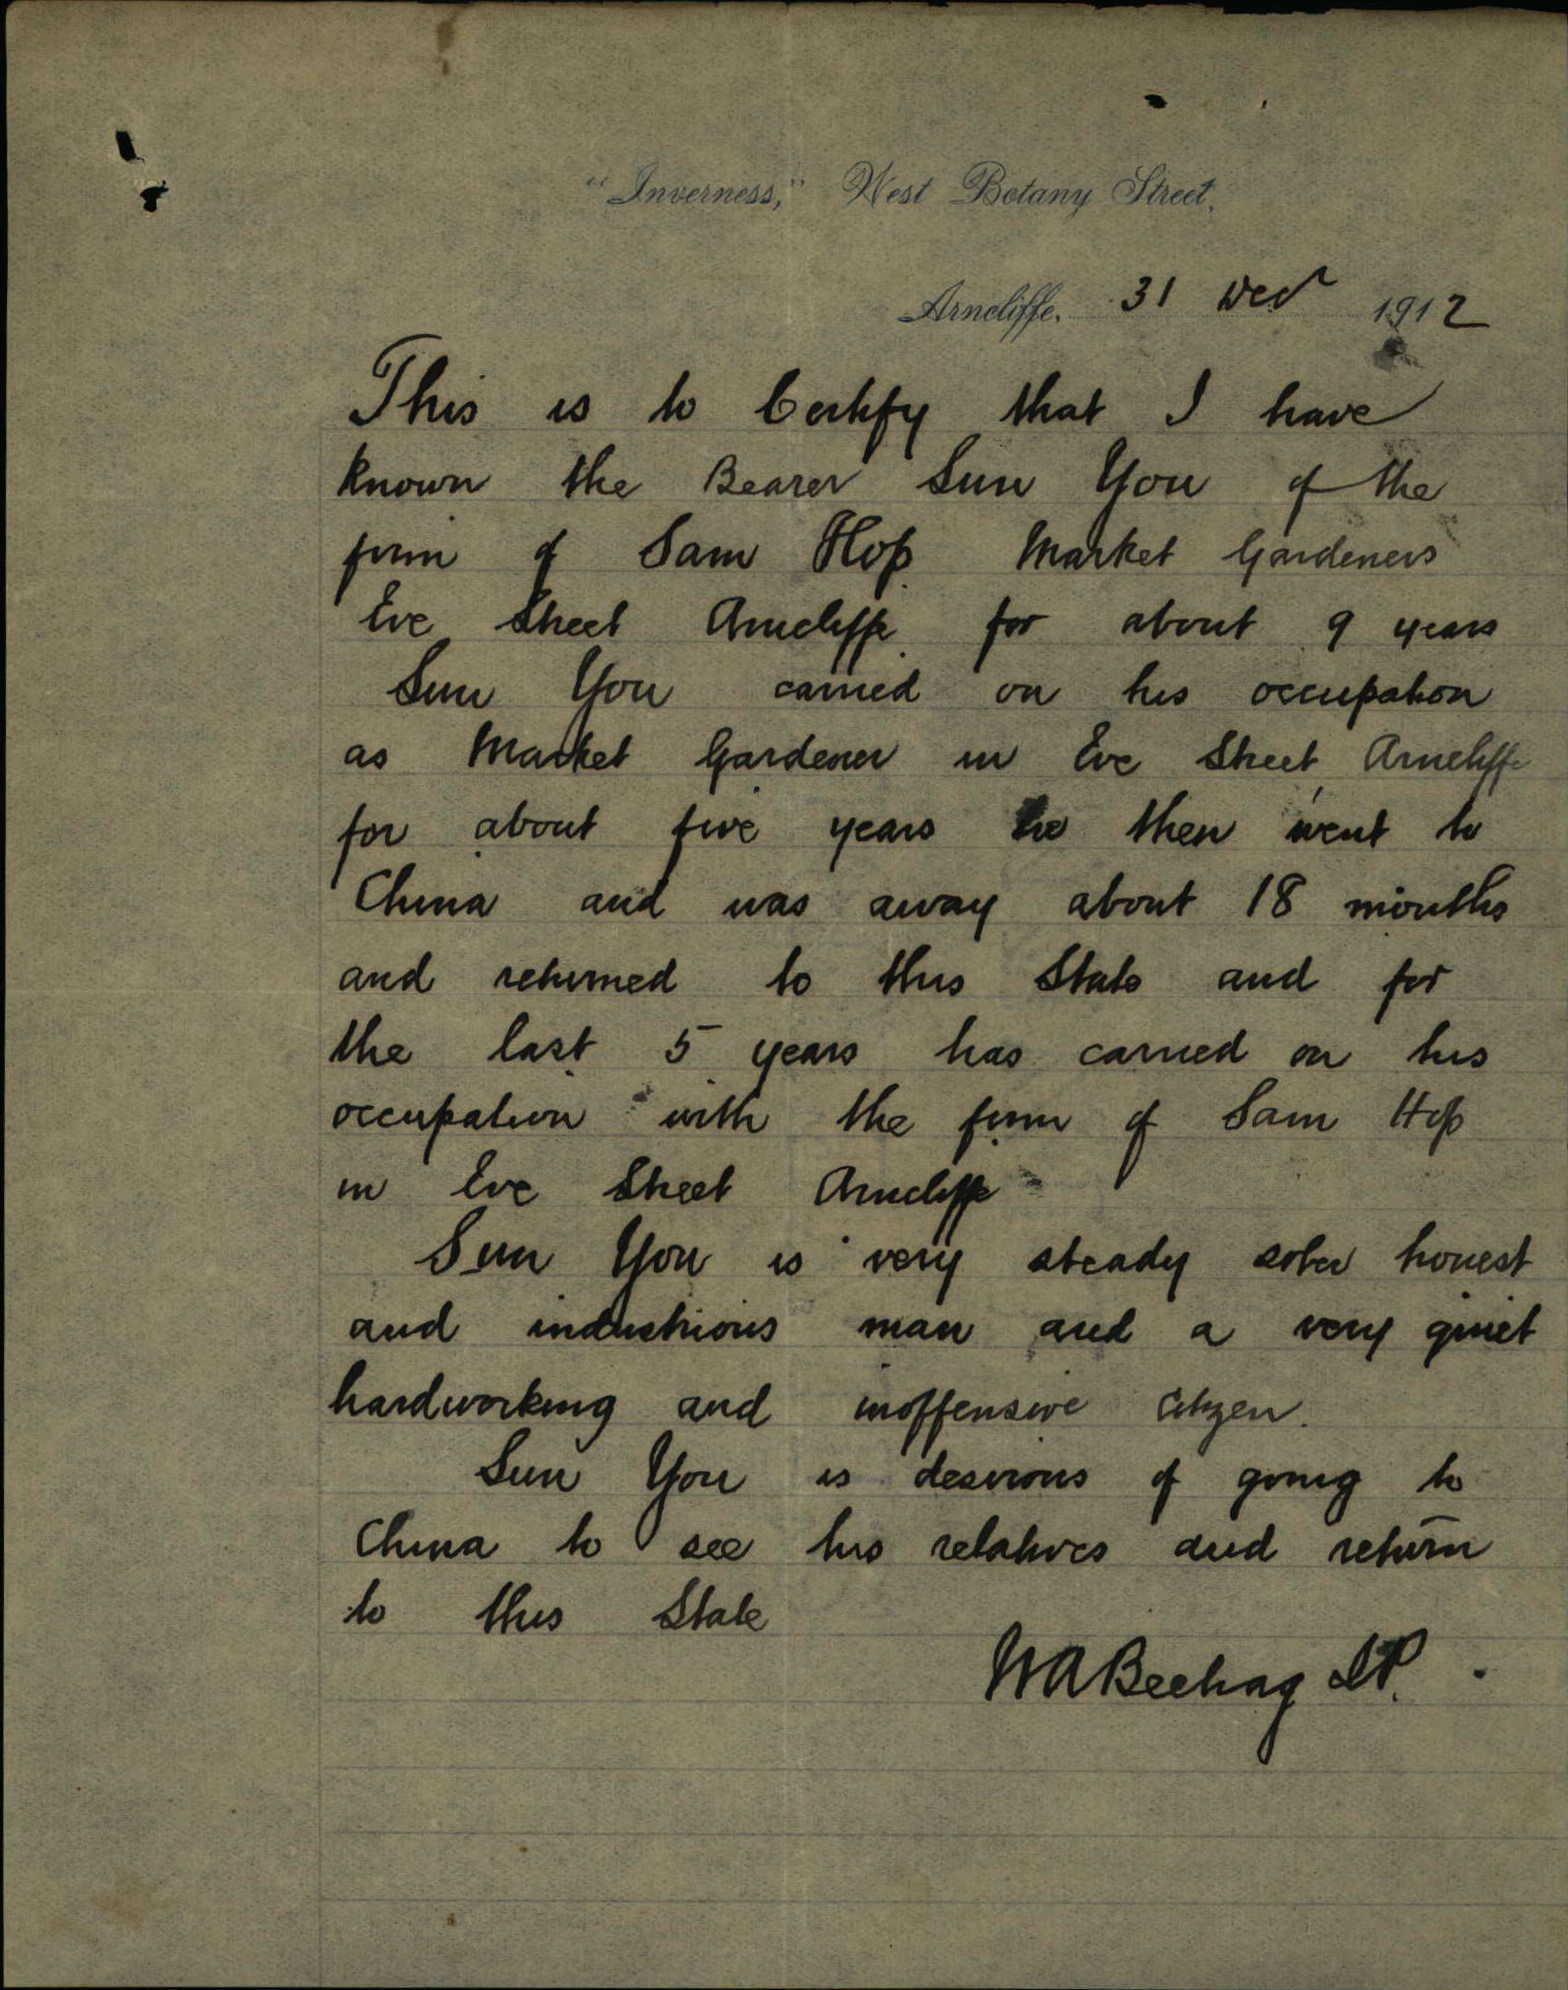 "Inverness," West Botany Street.
Arncliffe. 31 Decr 1912
This is to Certify that I have
known the Bearer Sun You of the
firm of Sam Hop Market Gardeners
Eve Street Arncliffe for about 9 years
Sun You carried on his occupation
as Market Gardener in Eve Street Arncliffe
for about five years he then went to
China and was away about 18 months
and returned to this State and for
the last 5 years has carried on his
occupation with the firm of Sam Hop
in Eve Street Arncliffe
Sun You is very steady sober honest
and industrious man and a very quiet
hardworking and inoffensive citizen.
Sun You is desirous of going to
China to see his relatives and return
to this State
WA Beehag JP.